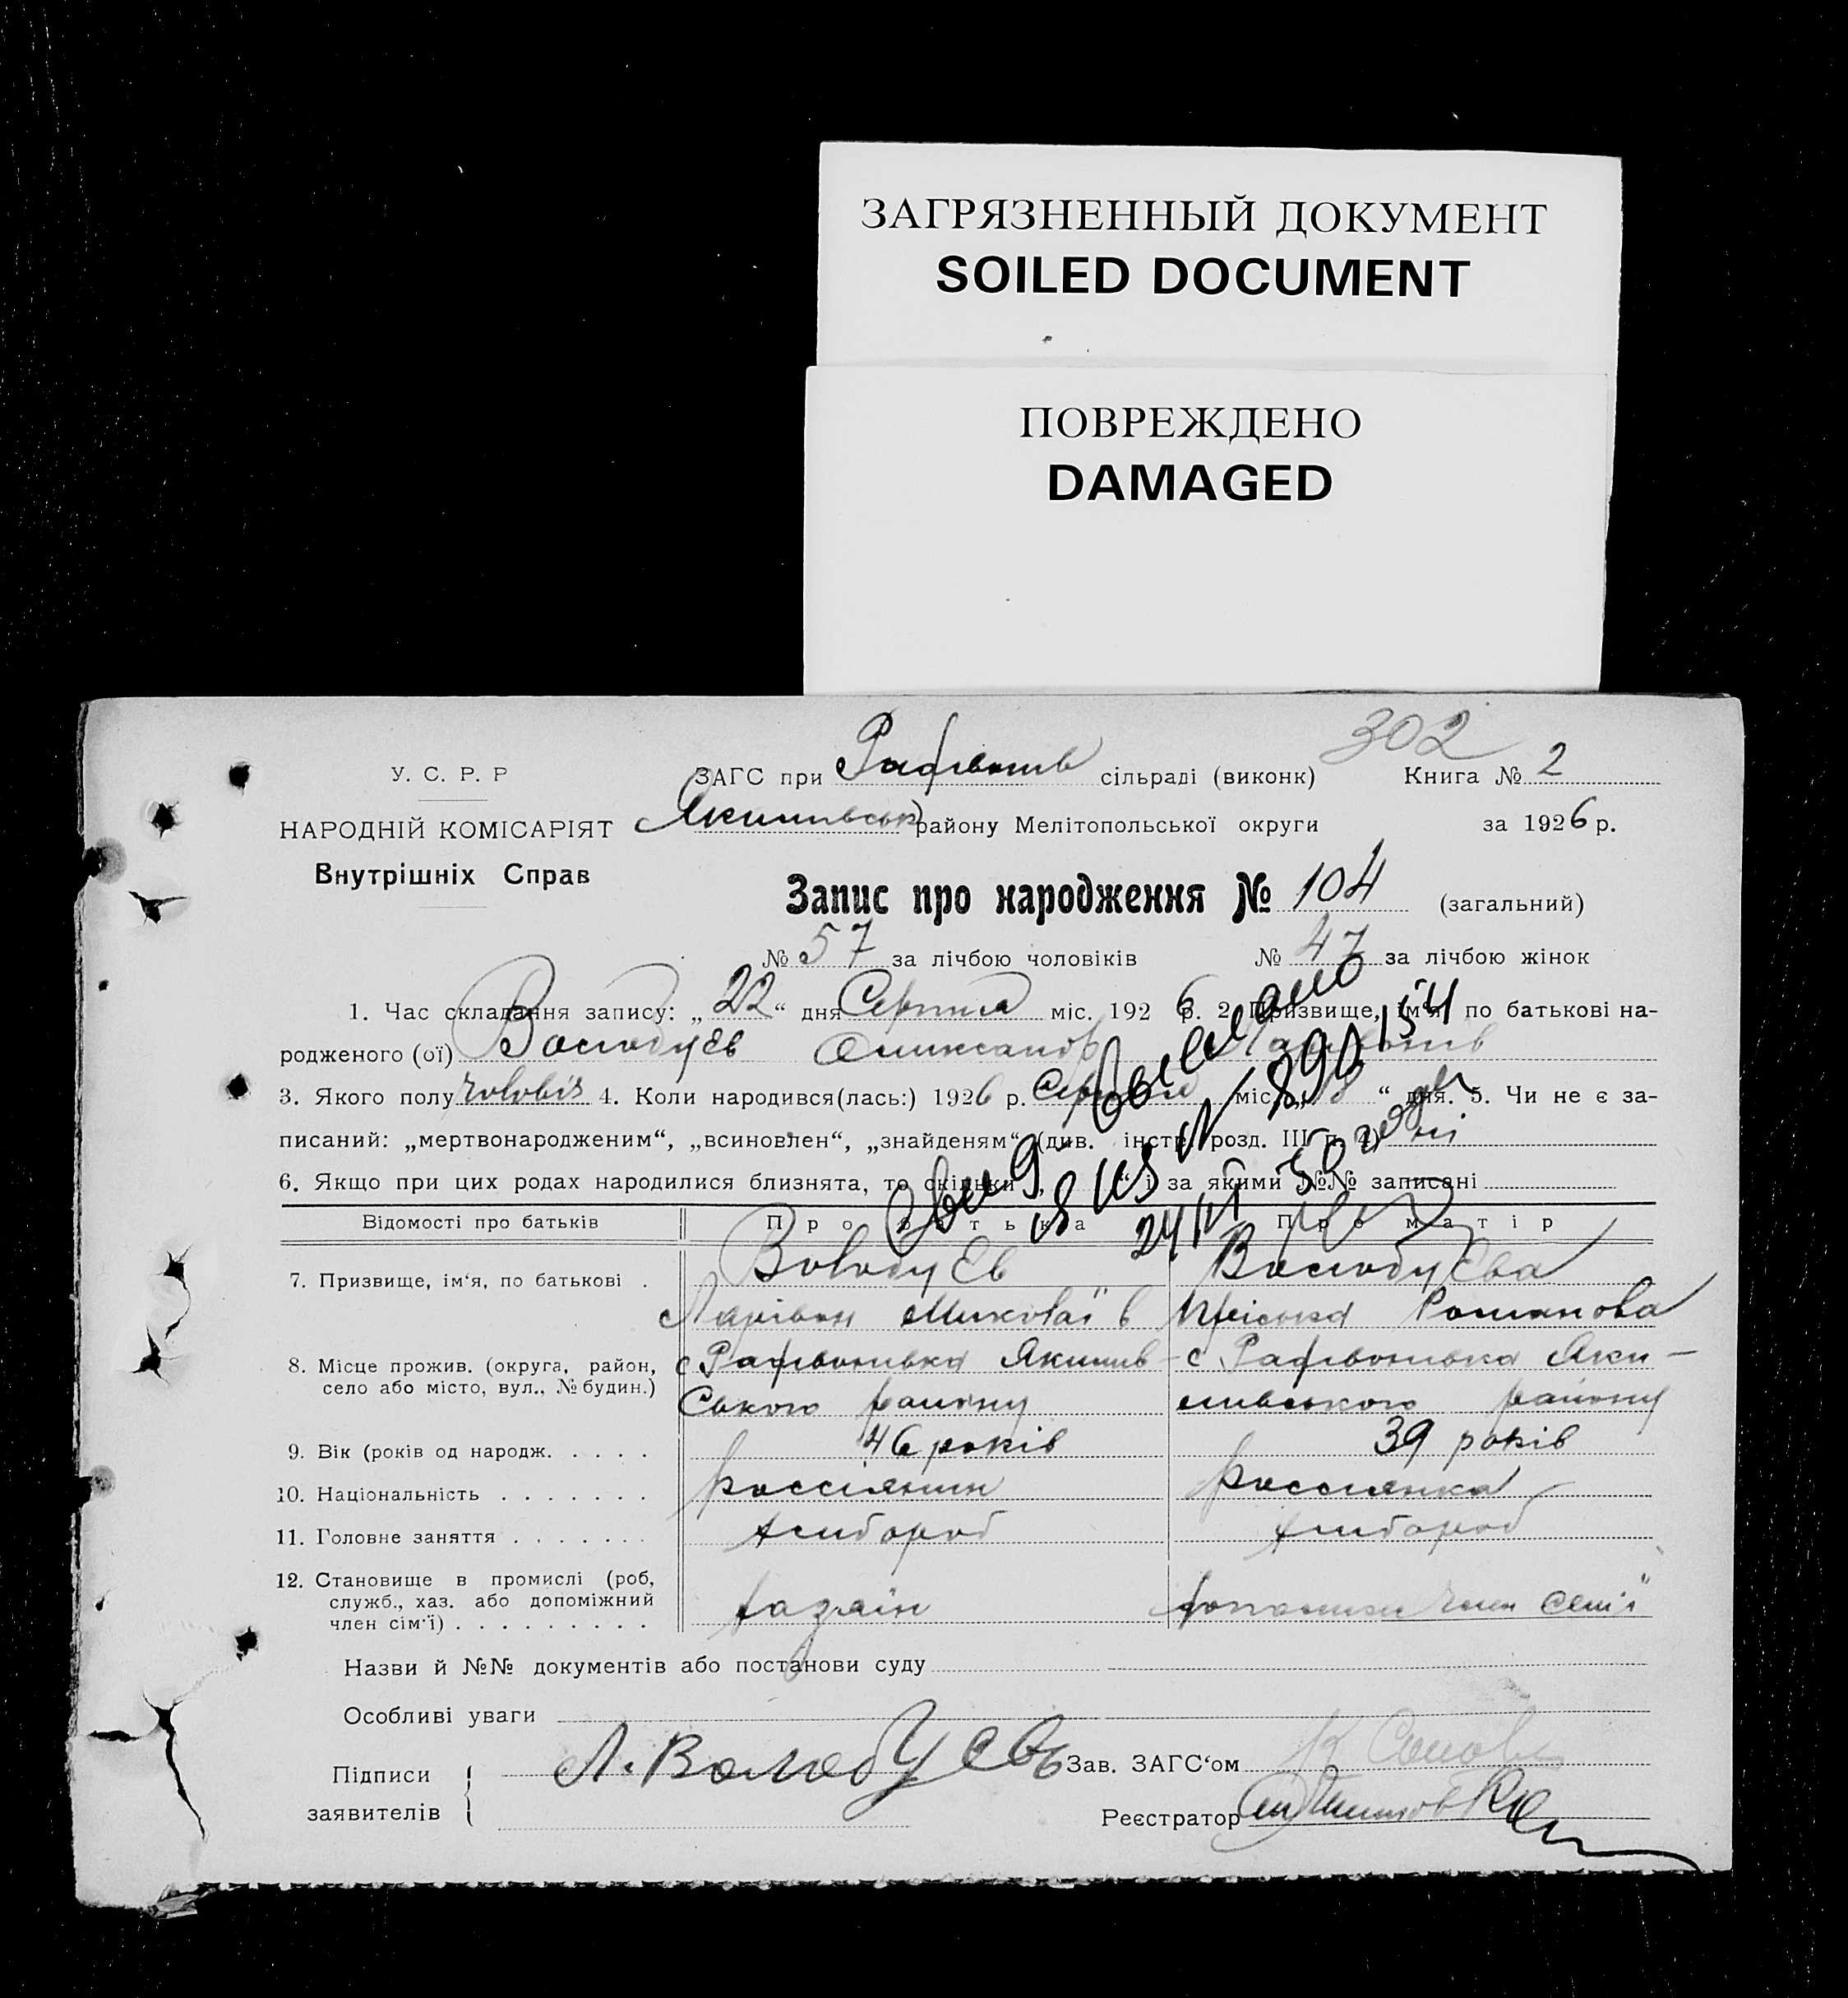 ЗАГРЯЗНЕННЫЙ ДОКУМЕНТ
SOILED DOCUMENT
ПОВРЕЖДЕНО
DAMAGED
302
У. С. Р. Р
ЗАГС при сільраді (виконк) Книга № 2
НАРОДНІЙ КОМІСАРІЯТ
Якимівськ району Мелітопольської округи за 1926 р.
Внутрішніх Справ
Запис про народження № 104 (загальний)
№ 57 за лічбою чоловіків № 47 за лічбою жінок
1. Час складання запису: „22“ дня Серпня міс. 1926 р. 2. Призвище, ім'я, по батькові на-
родженого (ої) Волобуєв Оликсандр
3. Якого полу чоловік 4. Коли народився(лась:) 1926 р. Серпня міс. „18“ дня. 5. Чи не є за-
писаний: „мертвонародженим“, „всиновлен“, „знайденям“ (див. інстр. розд. III п. 4) ні
6. Якщо при цих родах народилися близнята, то скільки „ “ і за якими №№ записані
Відомості про батьків Про батька Про матір
7. Призвище, ім‘я, по батькові . Волобуєв Волобуєва
Ларівон Миколаїв Романова
8. Місце прожив. (округа, район, с Якимів- с Яки-
село або місто, вул., № будин.) ського району мивського району
9. Вік (років од народж. . . . . 46 років 39 років
10. Національність . . . . . . . россіянин россиянка
11. Головне заняття . . . . . . . хлибороб хлибороб
12. Становище в промислі (роб,
служб., хаз. або допоміжний хазяїн член семії
член сім'ї) . . . . . . . . .
Назви й №№ документів або постанови суду
Особливі уваги
Підписи Л. Волобуевъ Зав. ЗАГС‘ом
заявителів Реєстратор